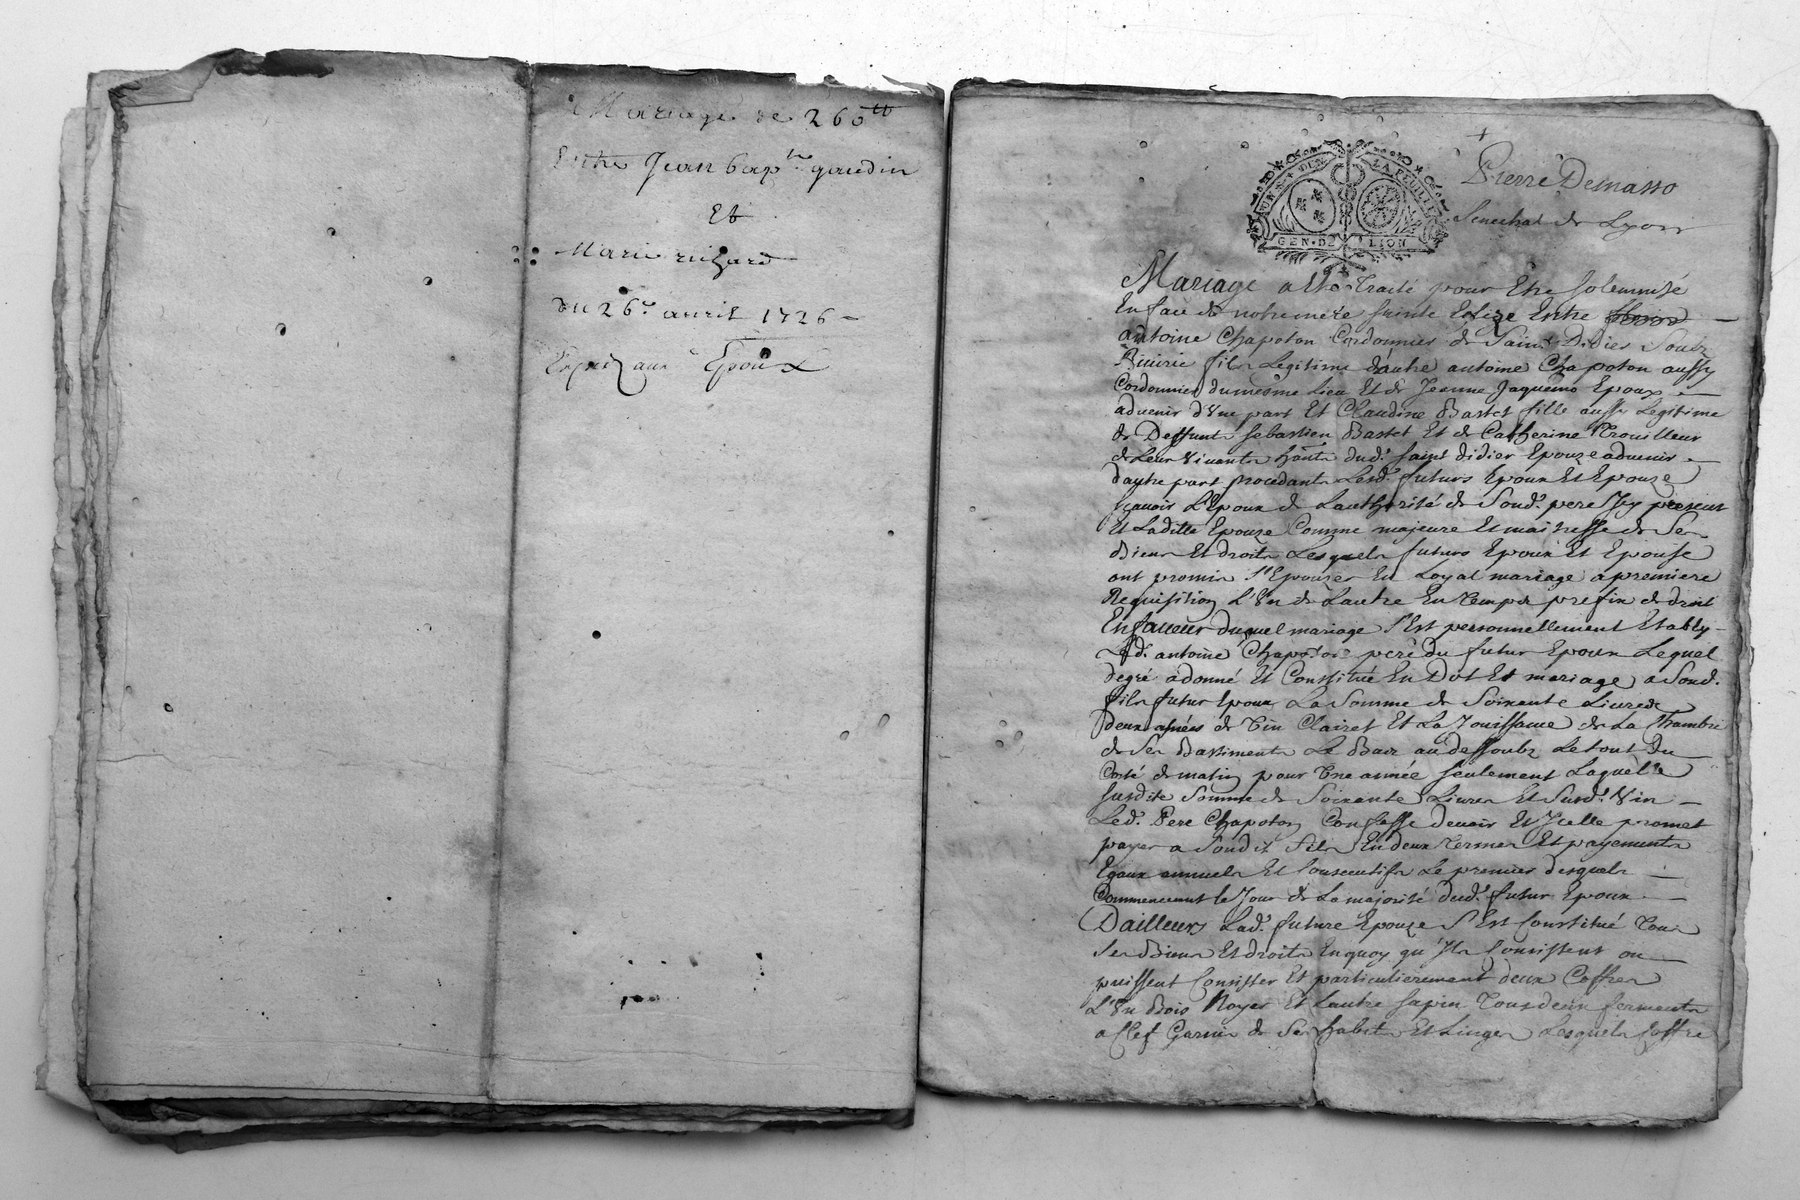 Mariage de 260 tt
Entre Jean bap.te gaudin
Et
Marie richard
du 26.e avril 1726
Expéz aux Epoux
GEN·DE LION
Pierre Demasso
Senechal de Lyon
Mariage a Eté Traité pour Etre Solemnisé
En face de notre mere Sainte Eglize Entre
antoine Chapoton Cordonnier de Saint Didier Soubz
Riuirie fils Legitime d'autre antoine Chapoton aussy
Cordonnier du mesme Lieu Et de Jeanne Jaquemo Epoux
aduenir d'Vne part Et Claudine Bastet fille aussy Legitime
de Deffunts Sebastien Bastet Et de Catherine Trouilleur
de Leur Viuants hants dud.t Saint Didier Epouze aduenir
d'autre part procedants Lesd.s futurs Epoux Et Epouze
scauoir L'Epoux de Lauthorité de Sond.t pere Jcy present
Et Laditte Epouze Comme majeure Et maitresse de Ses
Biens Et droits Lesquels futurs Epoux Et Epouse
ont promis S'Epouzer En Loyal mariage a premiere
Requisition L'Vn de Lautre En temps prefix de droit
En faueur duquel mariage S'Est personnellement Etably
Led.t antoine Chapoton pere du futur Epoux Lequel
de gré a donné Et Constitué En Dot Et mariage a Sond.t
fils futur Epoux La Somme de Soixante Liures
deux asnées de Vin Clairet Et La Jouissance de La Chambre
de Ses Bastiments Le Bas au dessoubz Le tout du
Costé de matin pour Vne année Seulement Laquelle
Susdite Somme de Soixante Liures Et Susd.t Vin
Led.t Pere Chapoton Confesse deuoir Et Jcelle promet
payer a Sondit fils En deux Termes Et payements
Egaux annuels Et Consecutifs Le premier desquels
Commencemt le Jour de La majorité dud.t futur Epoux
Dailleurs Lad.e future Epouze S'Est Constitué Tous
Ses Biens Et droits En quoy qu'Jls Consistent ou
puissent Consister Et particulierement deux Coffres
L'Vn Bois Noyer Et Lautre Sapin Tous deux fermants
a Clef Garnis de Ses habits Et Linges Lesquels Coffre